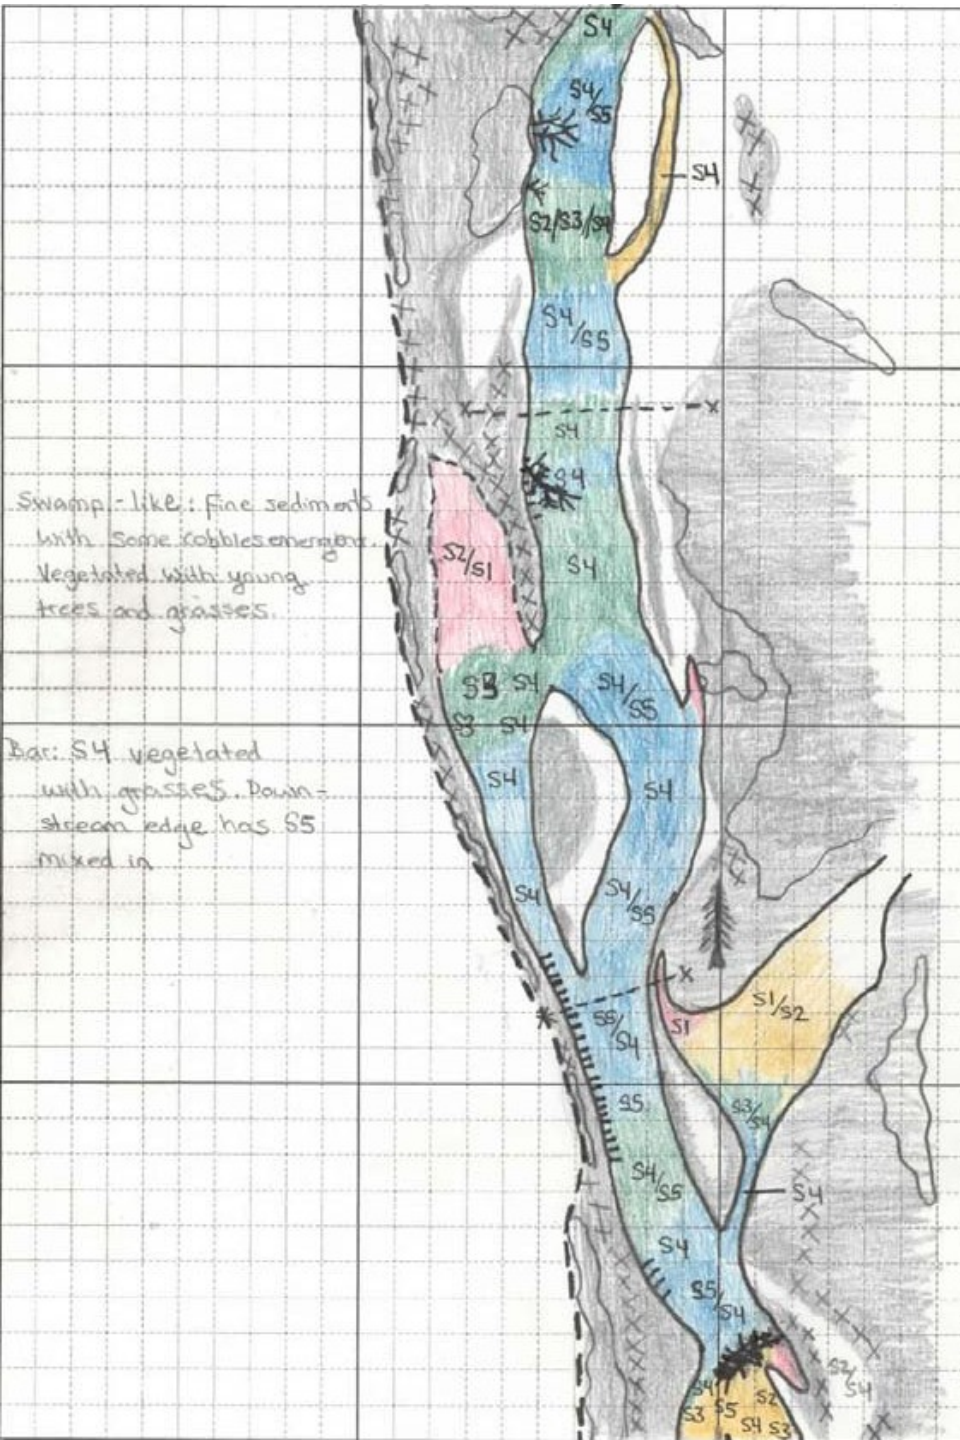 S4
S4/S5
S4
S2/S3/S4
S4/S5
S4
S4
Swamp-like: Fine sediments
with some cobbles emerging.
Vegetated with young
trees and grasses.
S2/S1
S4
S3 S4
S4/S5
S3 S4
Bar: S4 vegetated
with grasses. Down-
stream edge has S5
mixed in
S4
S4
S4
S4/S5
S1/S2
S1
S5/S4
S5
S3/S4
S4/S5
S4
S4
S5/S4
S2/S4
S4
S3
S5
S2
S4
S3